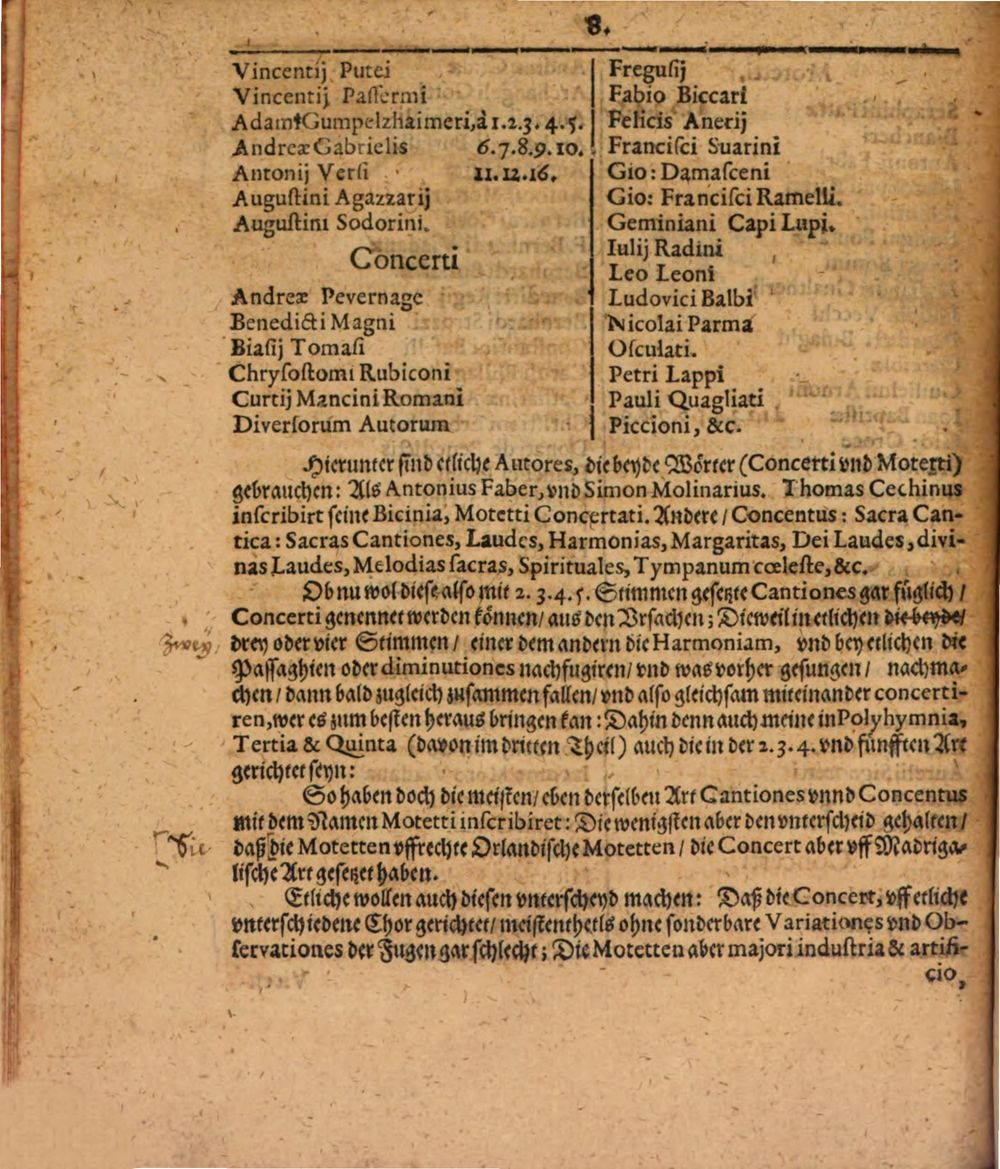 8.
Vincentij Putei
Vincentij Paſſermi
Adami Gumpelzhaimeri, à 1.2.3.4.5.
Andreæ Gabrielis 6.7.8.9.10.
Antonij Verſi 11.12.16.
Auguſtini Agazzarij
Auguſtini Sodorini.
Concerti
Andreæ Pevernage
Benedicti Magni
Biaſij Tomaſi
Chryſoſtomi Rubiconi
Curtij Mancini Romani
Diverſorum Autorum
Freguſij
Fabio Biccari
Felicis Anerij
Franciſci Suarini
Gio: Damaſceni
Gio: Franciſci Ramelli.
Geminiani Capi Lupi.
Iulij Radini
Leo Leoni
Ludovici Balbi
Nicolai Parma
Oſculati.
Petri Lappi
Pauli Quagliati
Piccioni, &c.
Hierunter ſind etliche Autores, die beyde Wörter (Concerti vnd Motetti)
gebrauchen: Als Antonius Faber, vnd Simon Molinarius. Thomas Cechinus
inſcribirt ſeine Bicinia, Motetti Concertati. Andere / Concentus: Sacra Can-
tica: Sacras Cantiones, Laudes, Harmonias, Margaritas, Dei Laudes, divi-
nas Laudes, Melodias ſacras, Spirituales, Tympanum cœleſte, &c.
Ob nu wol dieſe alſo mit 2. 3. 4. 5. Stimmen geſetzte Cantiones gar füglich /
Concerti genennet werden können / aus den Vrſachen; Dieweil in etlichen die beyde /
Zwey
drey oder vier Stimmen / einer dem andern die Harmoniam, vnd bey etlichen die
Paſſaghien oder diminutiones nachfugiren / vnd was vorher geſungen / nachma-
chen / dann bald zugleich zuſammen fallen / vnd alſo gleichſam miteinander concerti-
ren, wer es zum beſten heraus bringen kan: Dahin denn auch meine in Polyhymnia,
Tertia & Quinta (davon im dritten Theil) auch die in der 2. 3. 4. vnd fünfften Art
gerichtet ſeyn:
So haben doch die meiſten / eben derſelben Art Cantiones vnnd Concentus
mit dem Namen Motetti inſcribiret: Die wenigſten aber den vnterſcheid gehalten /
Die
daß die Motetten vffrechte Orlandiſche Motetten / die Concert aber vff Madriga-
liſche Art geſetzet haben.
Etliche wollen auch dieſen vnterſcheyd machen: Daß die Concert, vff etliche
vnterſchiedene Chor gerichtet / meiſtentheils ohne ſonderbare Variationes vnd Ob-
ſervationes der Fugen gar ſchlecht; Die Motetten aber majori induſtria & artifi-
cio,